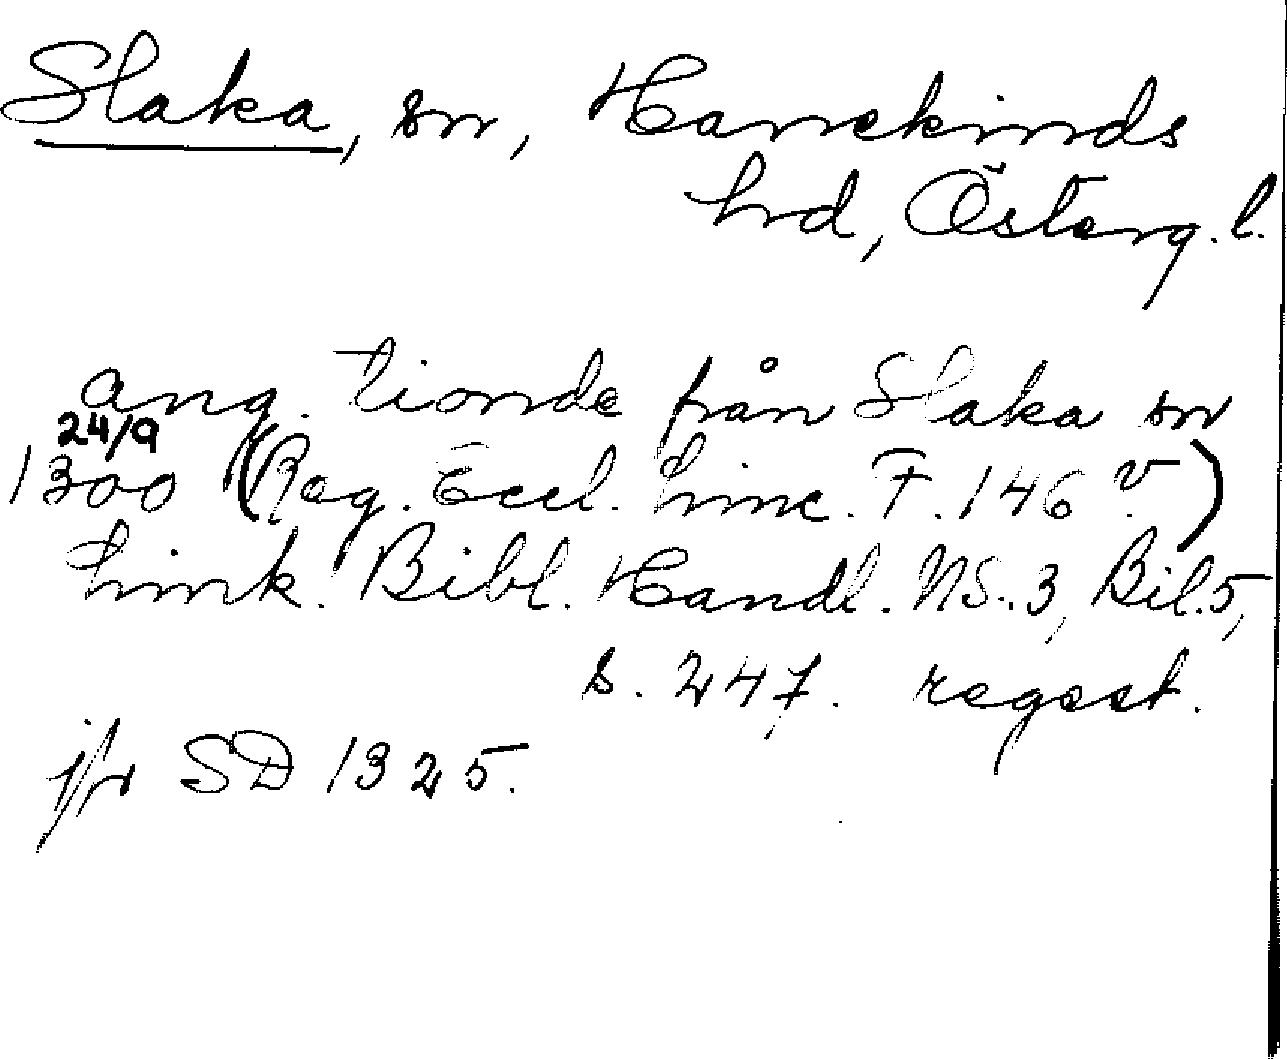 Slaka, sn, Hanekinds
hrd, Österg. l.
ang. tionde från Slaka sn
24/9
1300 (Reg. Eccl. Linc. F. 146 v.)
Link. Bibl. Handl. NS. 3, Bil. 5,
s. 247. regest.
jfr SD 1325.